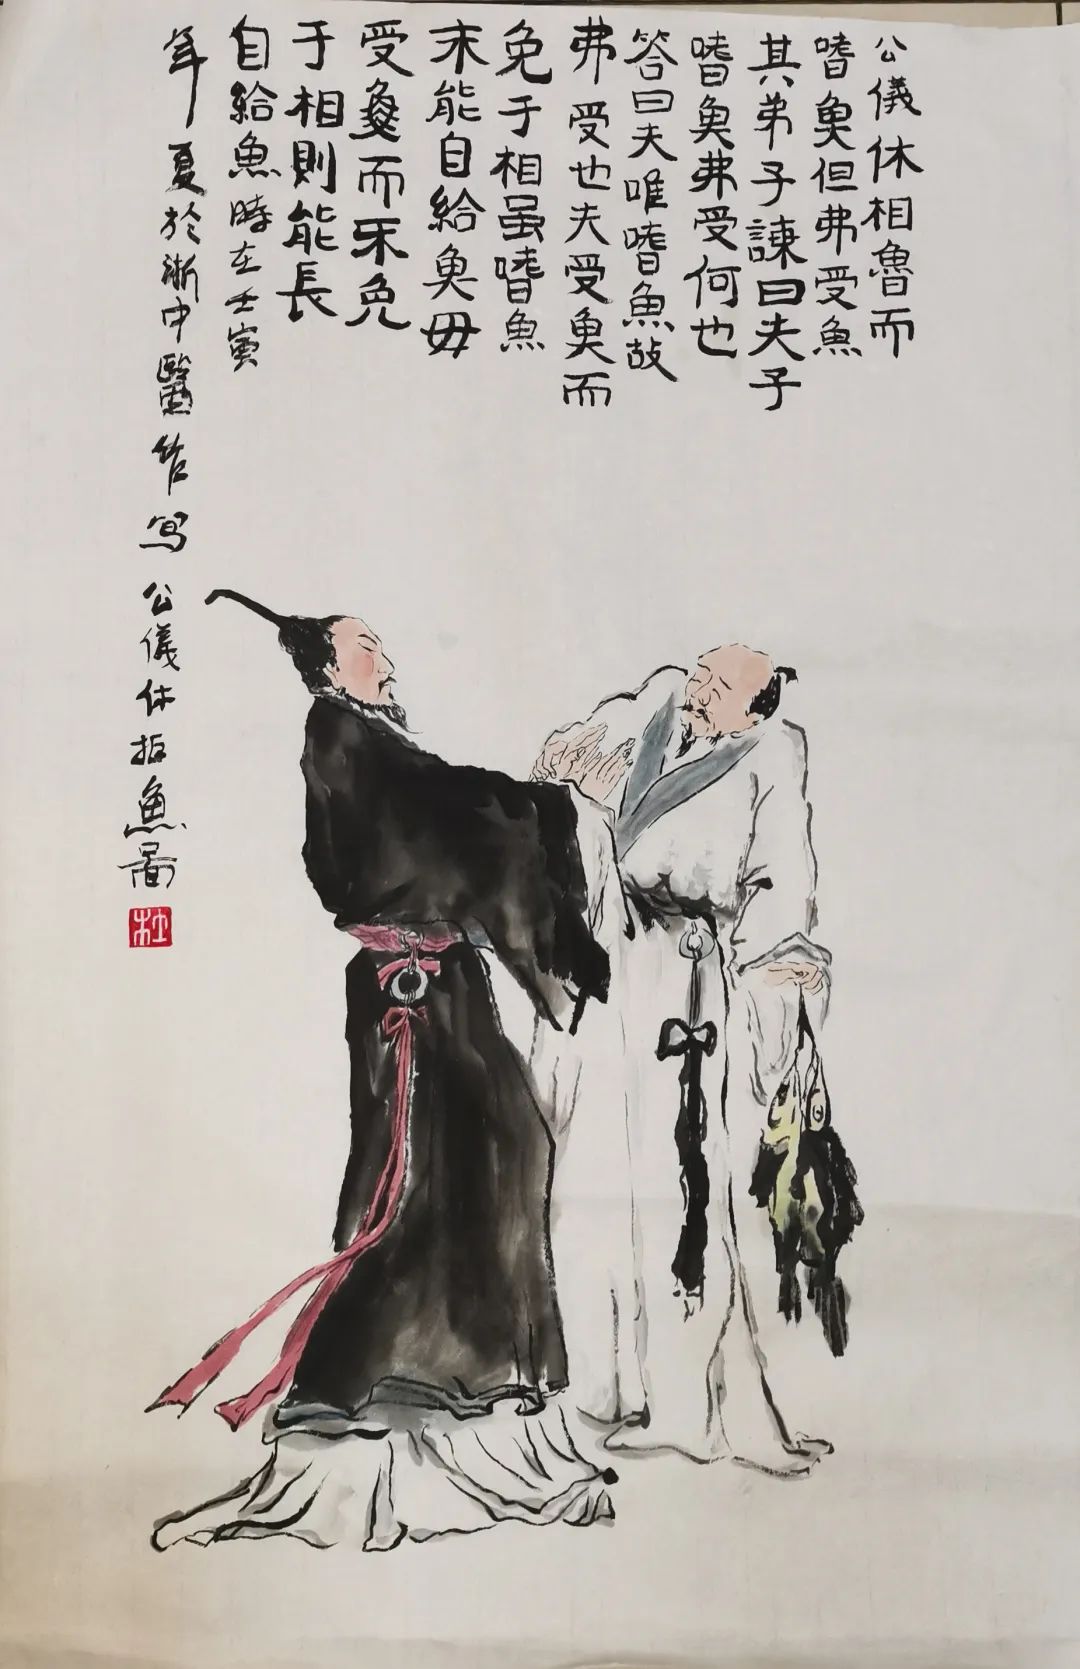 公儀休相魯而
嗜魚但弗受魚
其弟子諫曰夫子
嗜魚弗受何也
答曰夫唯嗜魚故
弗受也夫受魚而
免于相虽嗜魚
末能自給魚毋
受魚而不免
于相則能長
自給魚時在壬寅
年夏於浙中醫作写公儀休拒魚圖
杜